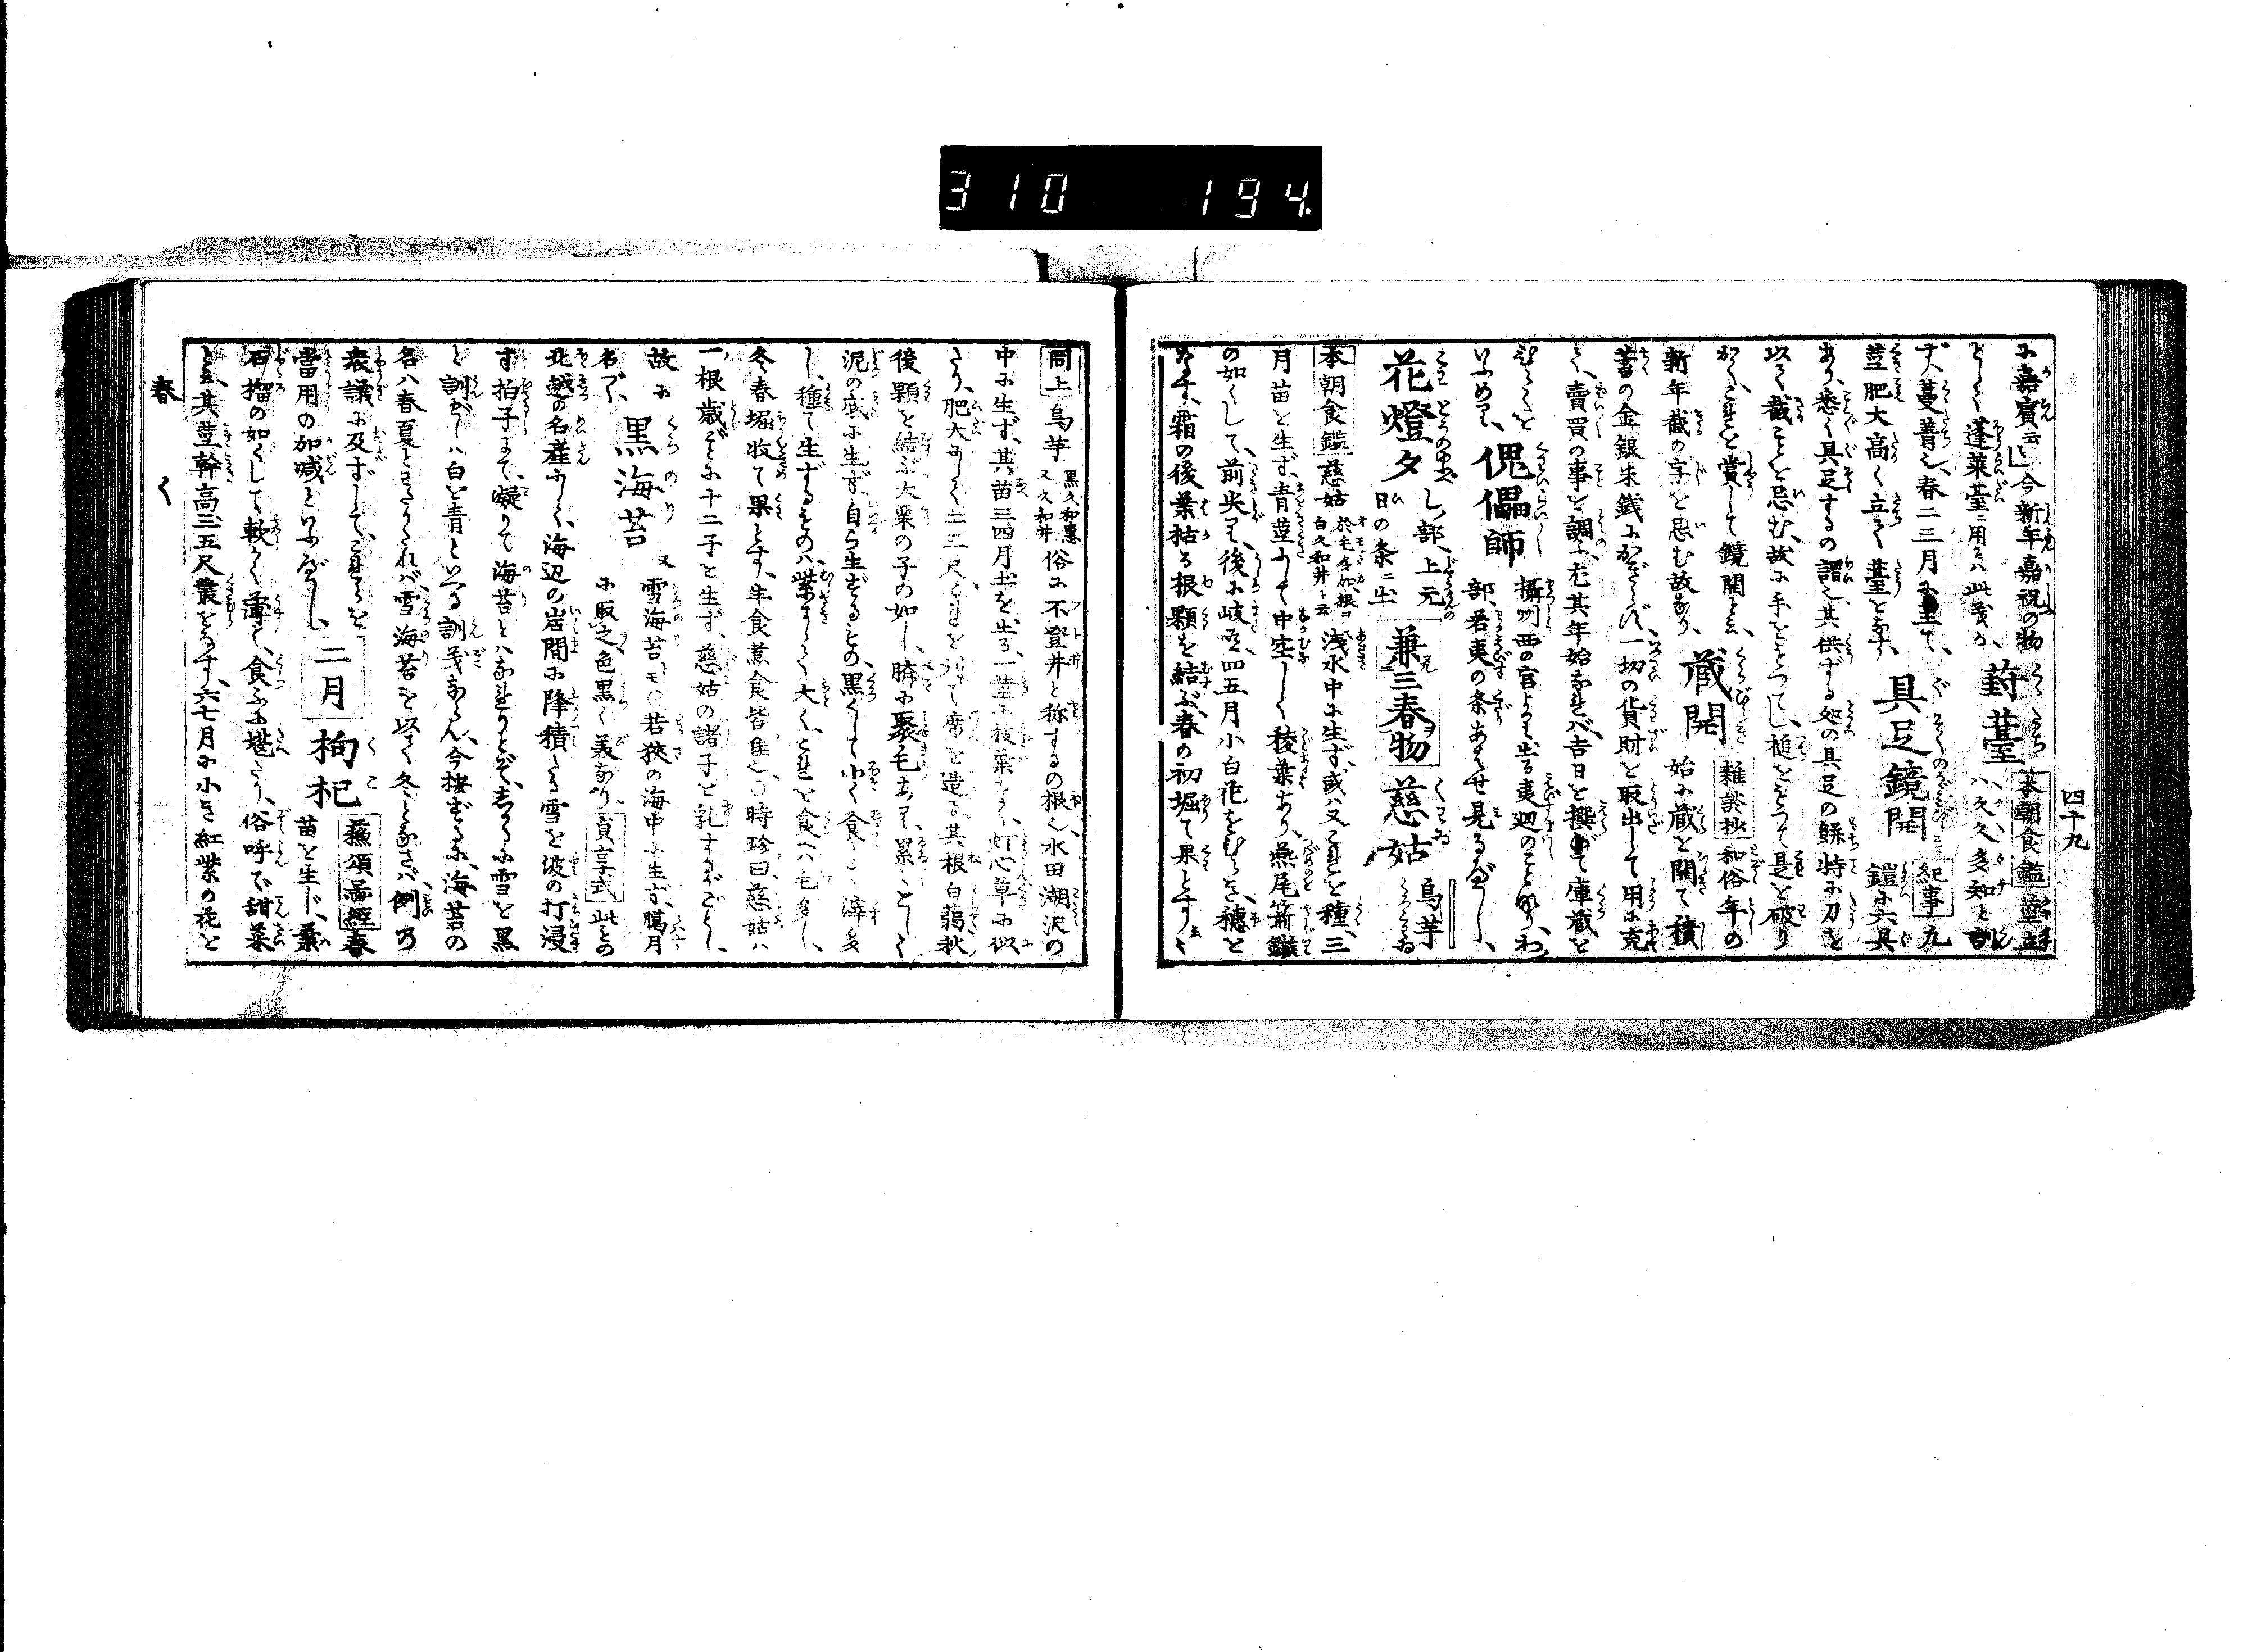 310 194.
四十九
に嘉賓云云」今新年嘉祝の物
として蓬莱臺ニ用るハ此義か、葑薹 本朝食鑑 莖立
ハ久久多知と訓
ず、蔓菁也、春二三月に至て、
莖肥大高く立て薹をなす、具足鏡開 紀事 凡
鎧に六具
あり、悉く具足するの謂也、其供ずる処の具足の餅特に刀を
以て截ことを忌む、故に手をもつてし、槌をもつて是を破り
かく、これを賞して鏡開と云、蔵開 雑談抄 和俗年の
始に蔵を開て積
新年截の字を忌む故なり、
蓄の金銀朱銭にかぎらず、一切の貨財を取出して用に充
て、賣買の事を調ふ、尤其年始なれバ、吉日を撰て庫蔵を
ひらくを
いふめり、傀儡師 攝州西の宮より出る夷廻のことなり、わ
部、若夷の条あはせ見るべし、
花燈夕 し部、上元
日の条ニ出 兼三春物 慈姑 烏芋
本朝食鑑 慈姑 浅水中に生ず、或ハ又これを種、三
月苗を生ず、青莖にして中空しく稜葉あり、燕尾箭鏃
の如くして、前尖り、後に岐る、四五月小白花をむらさき、穂と
なす、霜の後葉枯る、根顆を結ぶ、春の初堀て果とす、
同上 烏芋 黒久和惠
又久和井 俗に不登井と称するの根也、水田湖沢の
中に生ず、其苗三四月土を出る、一莖に枝葉なく、灯心草に似
たり、肥大にして二三尺、これを刈て席を造る、其根白蒻秋
後顆を結ぶ、大栗の子の如し、臍に聚毛あり、累々として
泥の底に生ず、自ら生ずるもの、黒くして小く食して滓多
し、種て生ずるものハ、紫にして大く、これを食へハ毛多し、
冬春堀收て果とす、生食煮食皆佳也、〇時珍曰、慈姑ハ
一根歳ごとに十二子を生ず、慈姑の諸子を乳するがごとし、
故に
名づく、黒海苔 又雪海苔トモ〇若狹の海中に生ず、臈月
に取之、色黒く美なり、貞享式 此もの
北越の名産にして、海辺の岩間に降積たる雪を波の打浸
す拍子まで、凝りて海苔とハなれりとぞ、しかるに雪を黒
と訓ずるハ、白を青といへる訓義ならん、今按ずるに、海苔の
名ハ春夏とまぎらハれバ、雪海苔を以て冬となさバ、例の
衆議に及ずして、これらを
當用の加減といふべし、二月 枸杞 蘇頌圖經 春
苗を生じ、葉
石榴の如くして軟く薄し、食ふに堪たり、俗呼で甜菜
と云、其莖幹高三五尺叢をなす、六七月に小き紅紫の花を
春 く